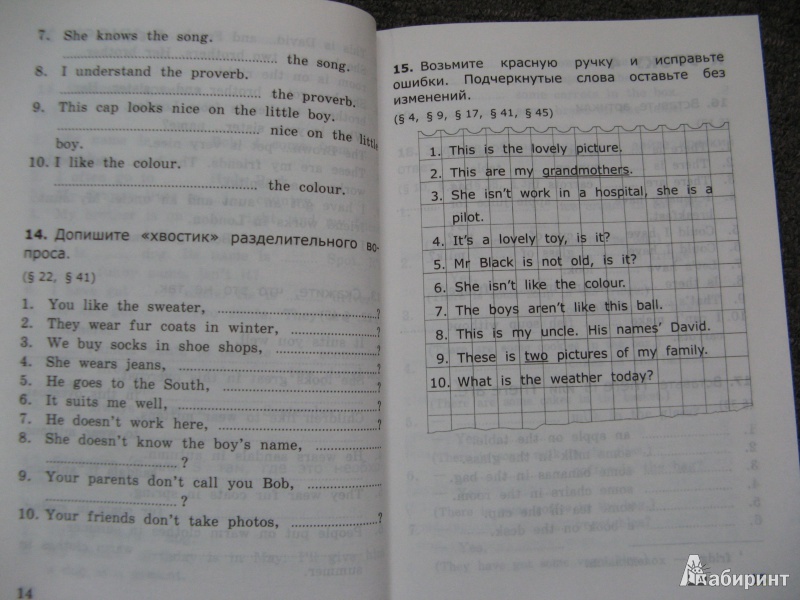 7. She knows the song.
........................................ the song.
8. I understand the proverb.
........................................ the proverb.
9. This cap looks nice on the little boy.
........................................ nice on the little
boy.
10. I like the colour.
........................................ the colour.
14. Допишите «хвостик» разделительного во-
проса.
(§ 22, § 41)
1. You like the sweater, ........................................?
2. They wear fur coats in winter, ..........................?
3. We buy socks in shoe shops, ..............................?
4. She wears jeans, ..................................................?
5. He goes to the South, ..........................................?
6. It suits me well, ..................................................?
7. He doesn't work here, ........................................?
8. She doesn't know the boy's name, ....................
..............................?
9. Your parents don't call you Bob, ......................
..............................?
10. Your friends don't take photos, ......................?
14
15. Возьмите красную ручку и исправьте
ошибки. Подчеркнутые слова оставьте без
изменений.
(§ 4, § 9, § 17, § 41, § 45)
1. This is the lovely picture.
2. This are my grandmothers.
3. She isn't work in a hospital, she is a
pilot.
4. It's a lovely toy, is it?
5. Mr Black is not old, is it?
6. She isn't like the colour.
7. The boys aren't like this ball.
8. This is my uncle. His names' David.
9. These is two pictures of my family.
10. What is the weather today?
Лабиринт